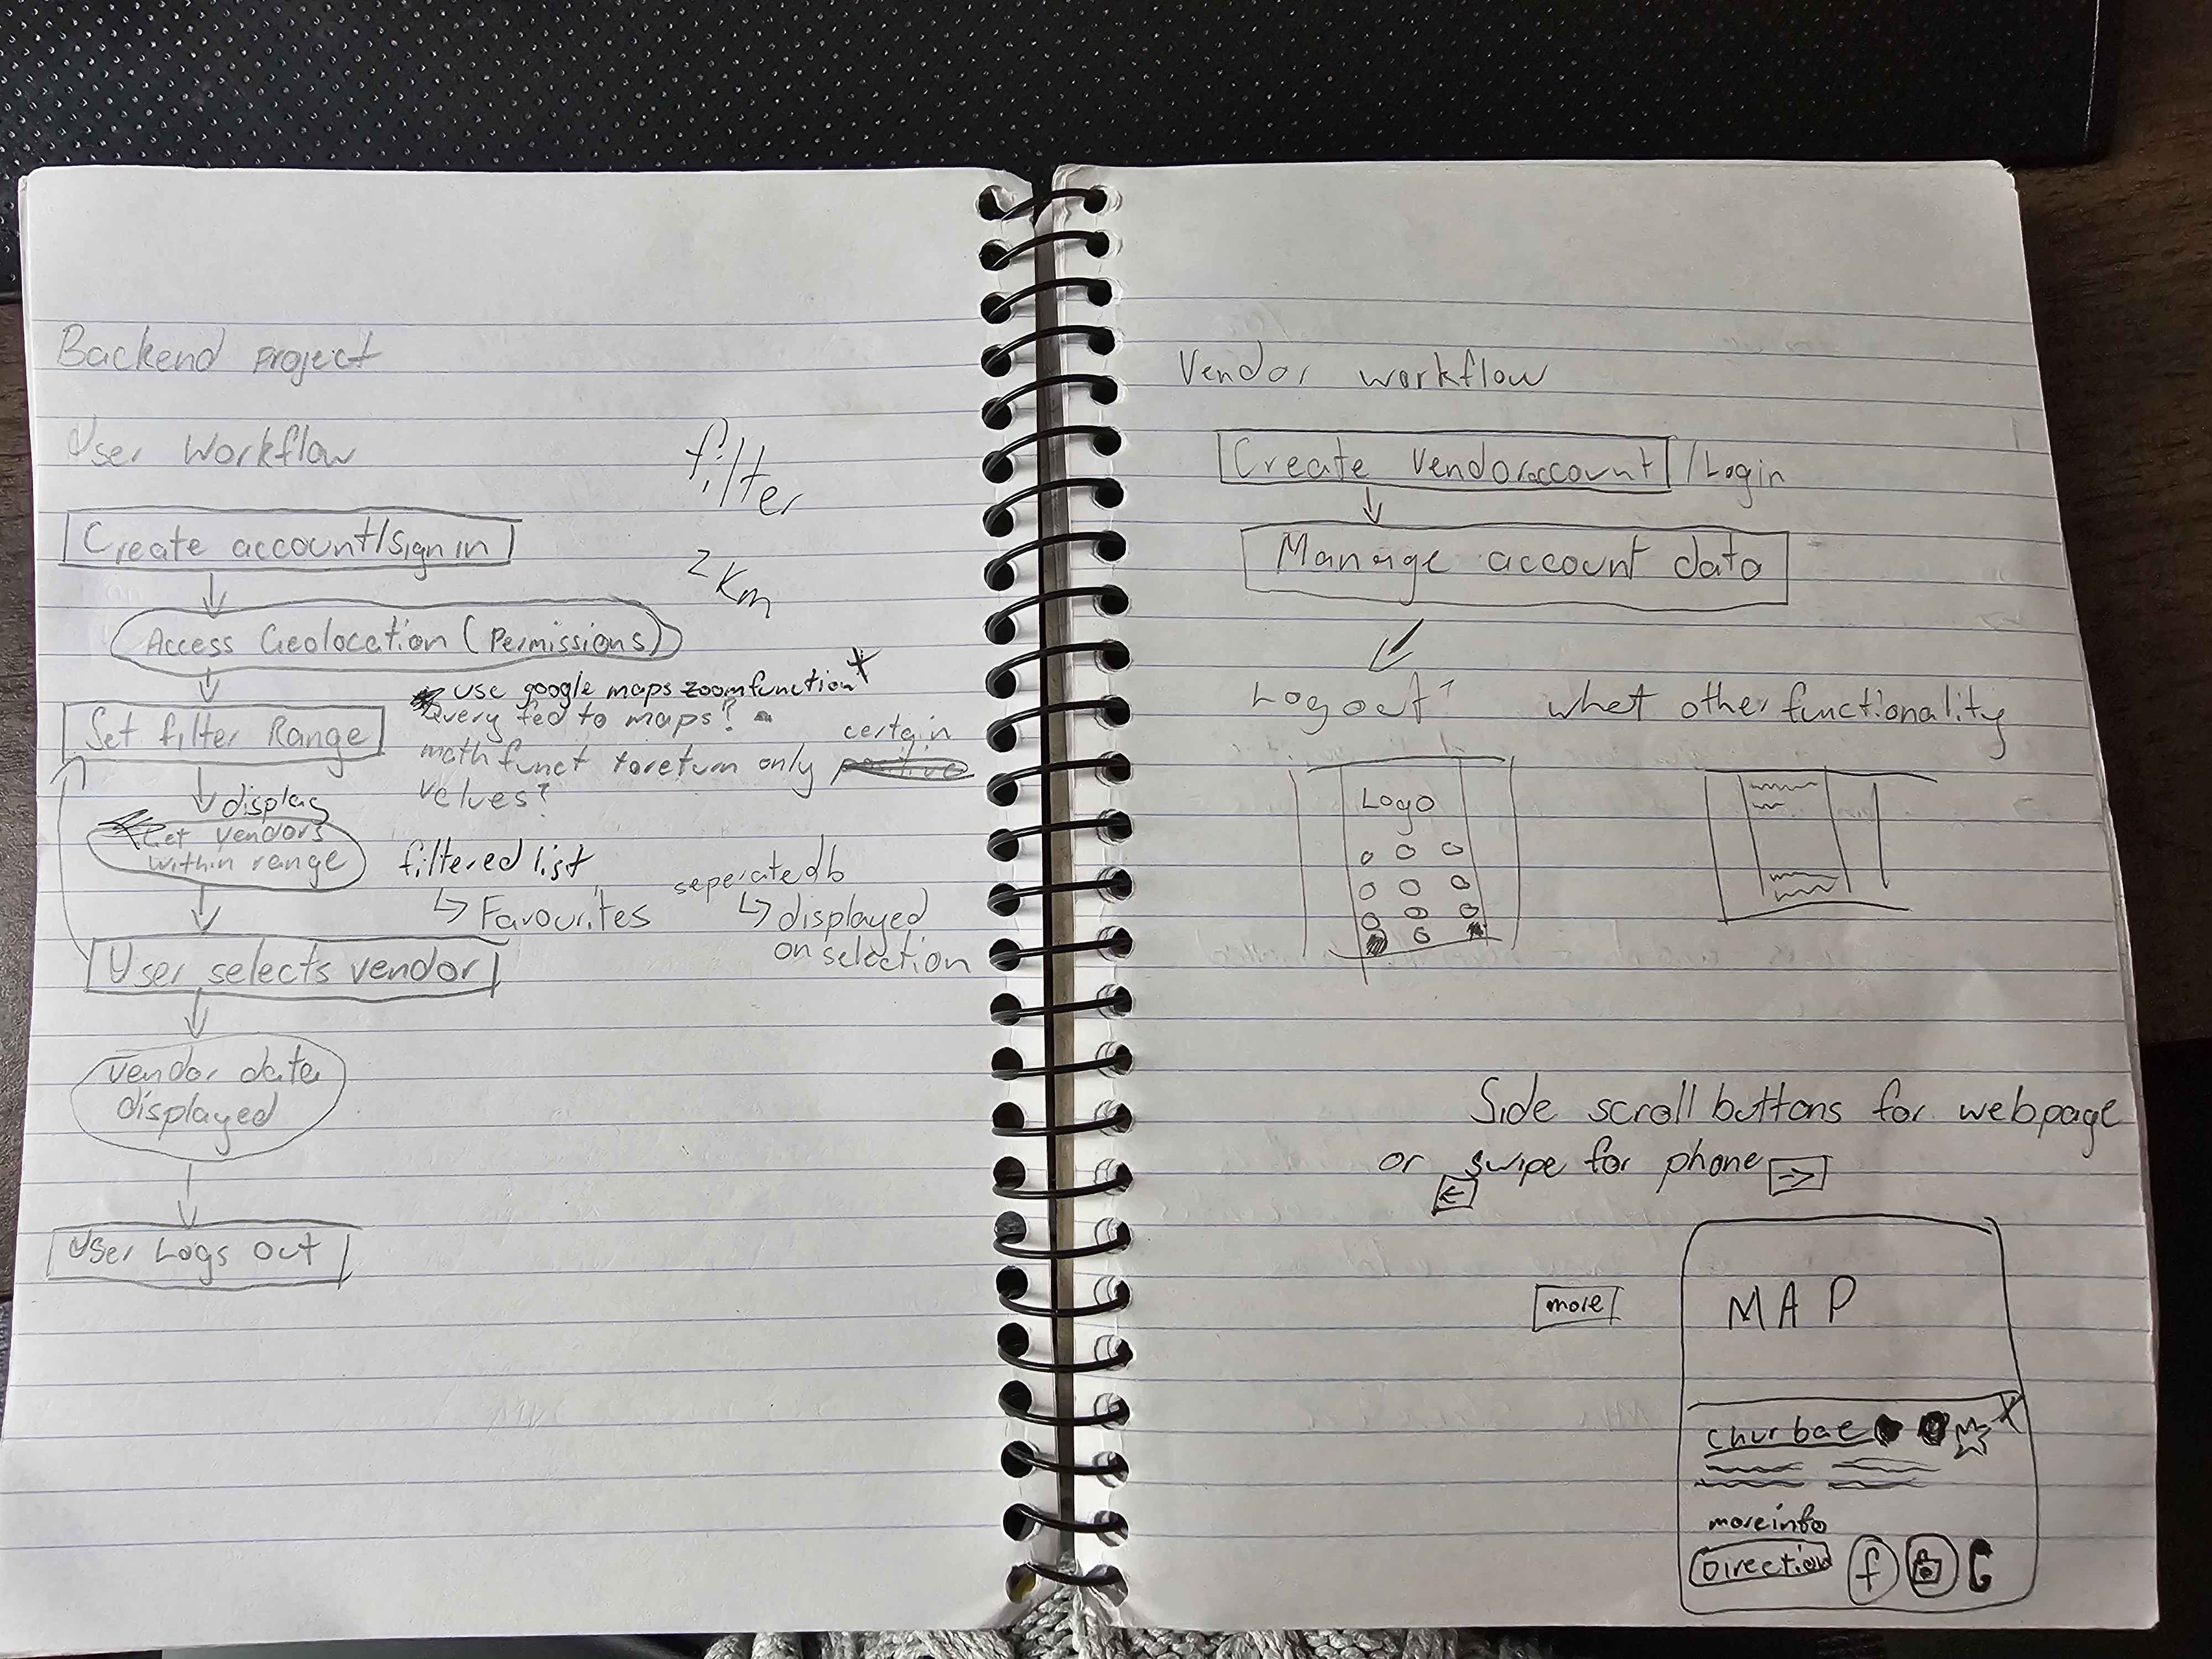 Backend project
User workflow
filter
Create account/sign in
2 km
Access Geolocation (Permissions)
use google maps zoom function
Query fed to maps?
Set filter Range
certain
math funct to return only
values?
display
Get vendors
within range
filtered list
↳ Favourites
seperate db
↳ displayed
on selection
User selects vendor
vendor data
displayed
User Logs Out
Vendor workflow
Create Vendor account / Login
Manage account data
Log out?
what other functionality
Logo
Side scroll buttons for webpage
or swipe for phone
← →
more
MAP
churbae
more info
Direction
f